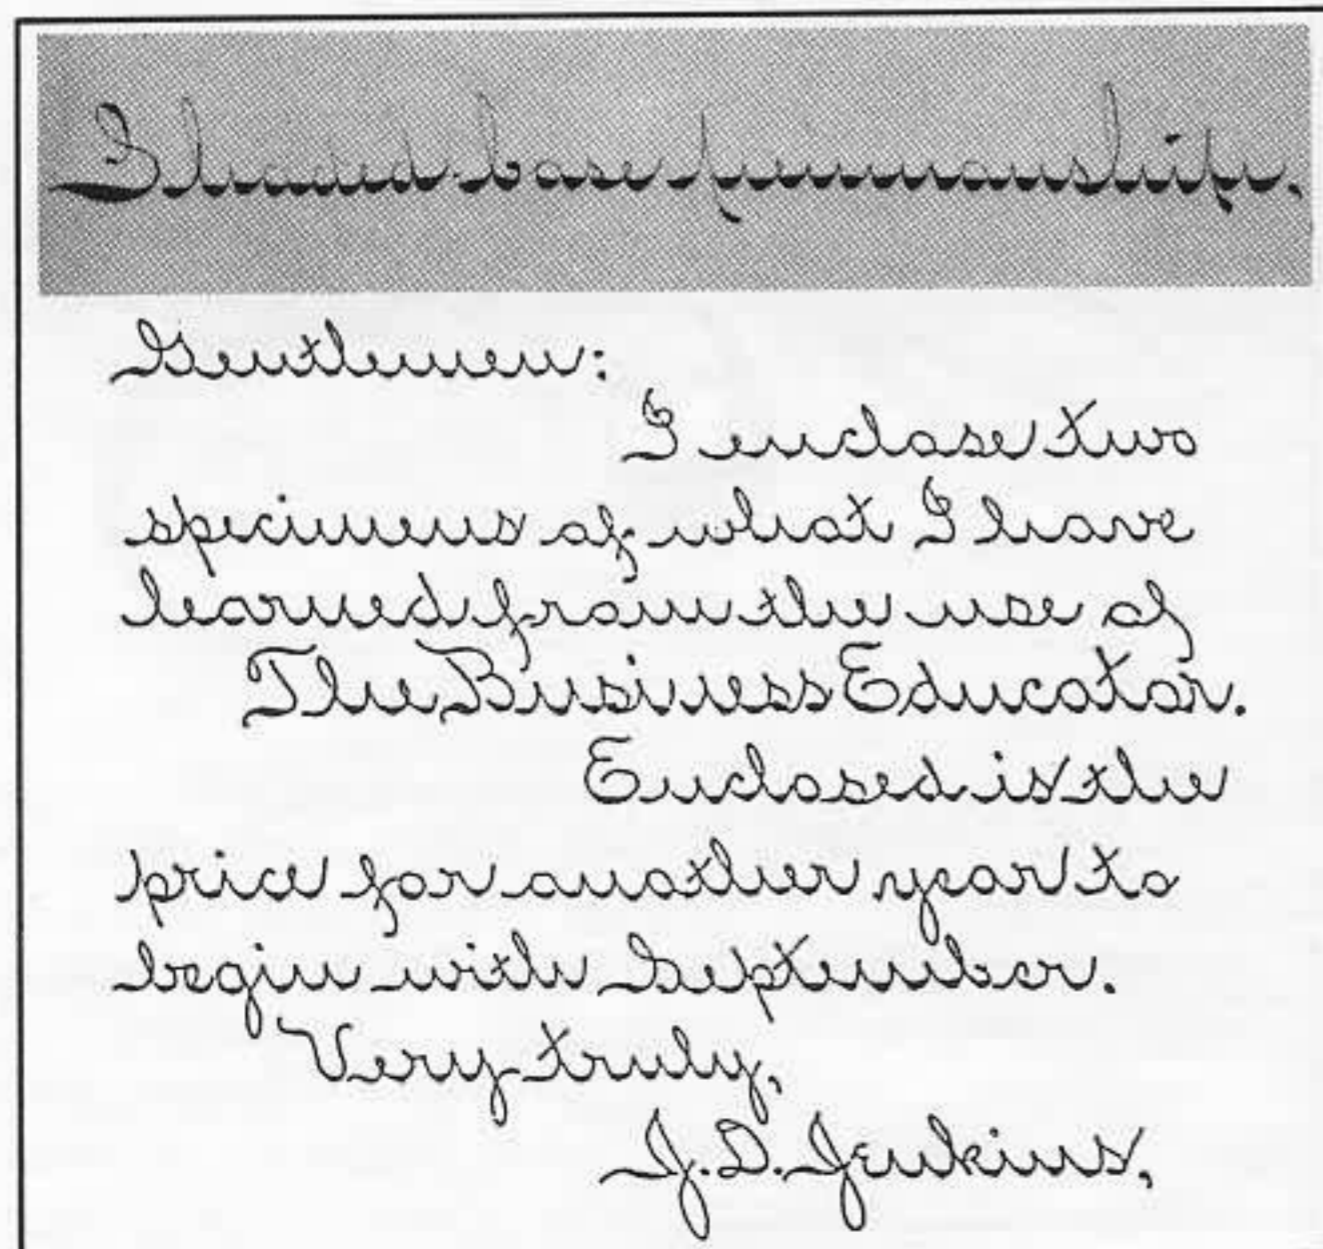 Shaded-base penmanship.
Gentlemen:
I enclose two
specimens of what I have
learned from the use of
The Business Educator.
Enclosed is the
price for another year to
begin with September.
Very truly,
J. D. Jenkins,